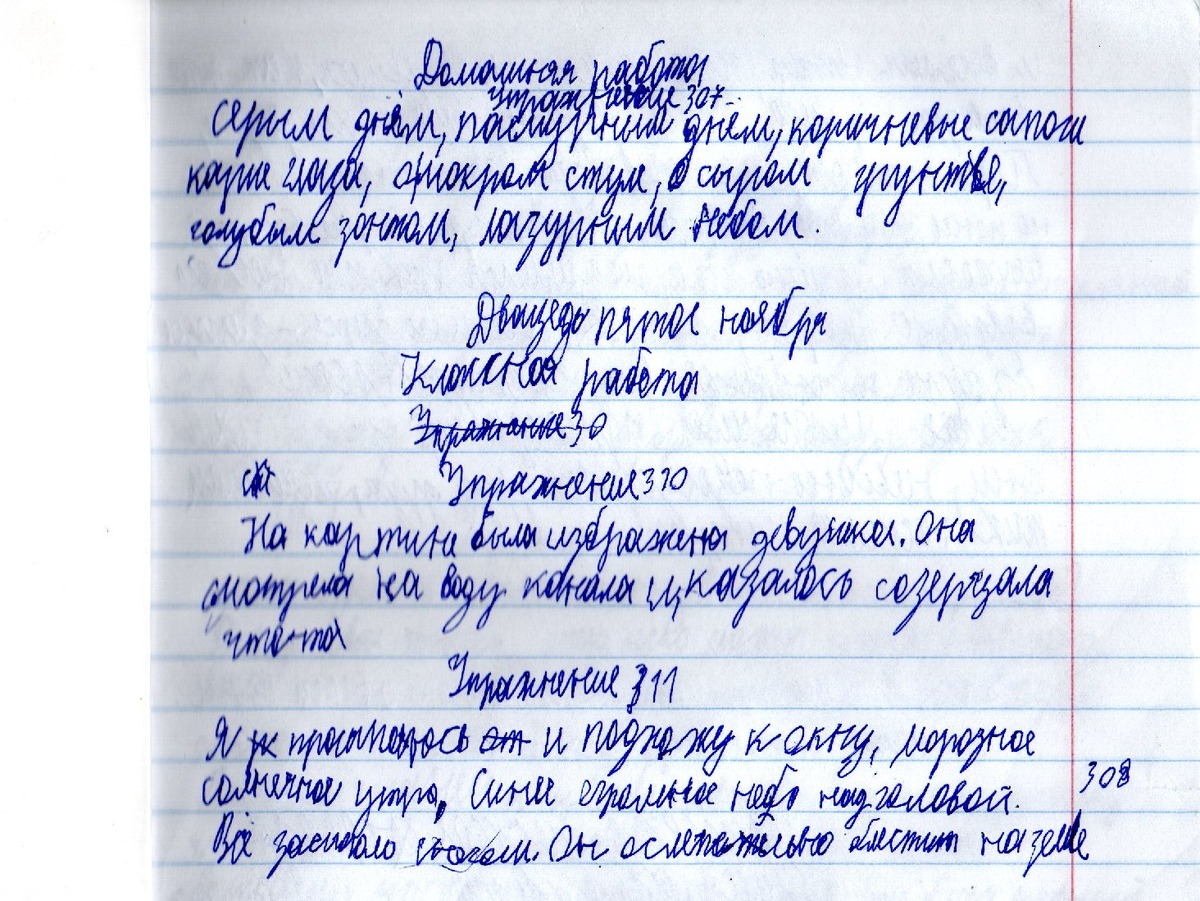 Домашняя работа
Упражнение 307
серым днём, пасмурным днём, коричневые сапоги
карие глаза, мокром стуле, сыром грунте,
голубым зонтом, лазурным небом.
Двацедь пятое ноября
Классная работа
Упражнение 30
Упражнение 310
На картине была изображена девушка. Она
смотрела на воду канала и, казалось созерцала
что-то
Упражнение 311
Я просыпаюсь и подхожу к окну, морозное
солнечное утро. Синее огромное небо над головой.
308
Всё засыпало снегом. Он ослепительно блестит на земле